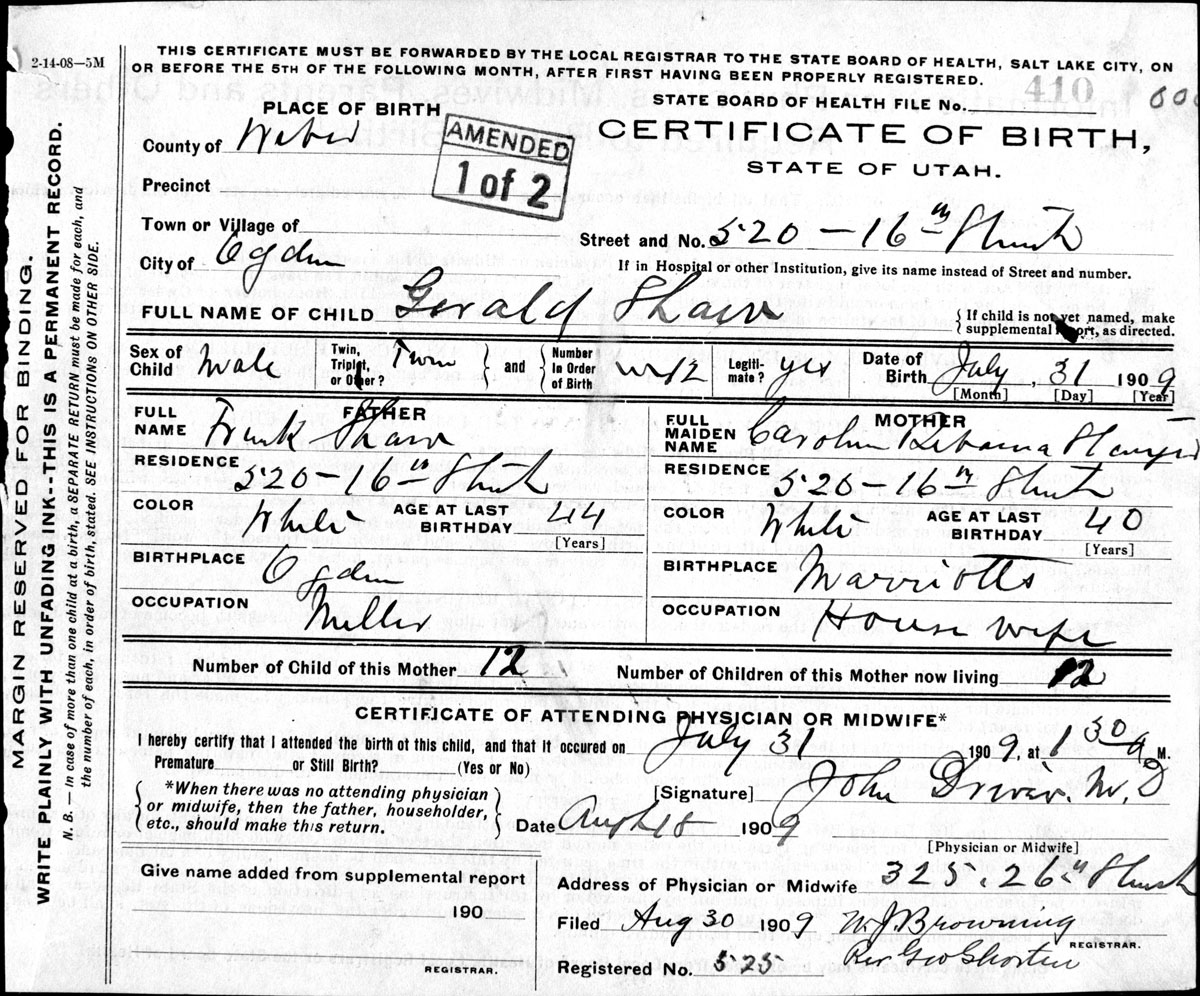 2-14-08—5M
THIS CERTIFICATE MUST BE FORWARDED BY THE LOCAL REGISTRAR TO THE STATE BOARD OF HEALTH, SALT LAKE CITY, ON
OR BEFORE THE 5TH OF THE FOLLOWING MONTH, AFTER FIRST HAVING BEEN PROPERLY REGISTERED.
MARGIN RESERVED FOR BINDING.
WRITE PLAINLY WITH UNFADING INK--THIS IS A PERMANENT RECORD.
N. B.— In case of more than one child at a birth, a SEPARATE RETURN must be made for each, and
the number of each, in order of birth, stated. SEE INSTRUCTIONS ON OTHER SIDE.
STATE BOARD OF HEALTH FILE No. 410
PLACE OF BIRTH
CERTIFICATE OF BIRTH,
STATE OF UTAH.
AMENDED
1 of 2
County of Weber
Precinct
Town or Village of
Street and No. 520 - 16th Street
City of Ogden
If in Hospital or other Institution, give its name instead of Street and number.
FULL NAME OF CHILD Gerald Shaw
{ If child is not yet named, make
supplemental report, as directed.
Sex of Child Male Twin, Triplet, or Other? Twin } and { Number In Order of Birth 12 Legiti-mate? yes Date of Birth July, 31 1909
[Month] [Day] [Year]
FATHER
FULL NAME Frank Shaw
RESIDENCE 520 - 16th Street
COLOR White AGE AT LAST BIRTHDAY 44
[Years]
BIRTHPLACE Ogden
OCCUPATION Miller
MOTHER
FULL MAIDEN NAME Caroline
RESIDENCE 520 - 16th Street
COLOR White AGE AT LAST BIRTHDAY 40
[Years]
BIRTHPLACE Marriotts
OCCUPATION House wife
Number of Child of this Mother 12 Number of Children of this Mother now living 12
CERTIFICATE OF ATTENDING PHYSICIAN OR MIDWIFE*
I hereby certify that I attended the birth of this child, and that it occured on July 31 1909, at 1 30 a M.
Premature or Still Birth? (Yes or No)
{ *When there was no attending physician
or midwife, then the father, householder,
etc., should make this return. }
[Signature] John Driver. M. D
Date 18 1909
[Physician or Midwife]
Give name added from supplemental report
190
REGISTRAR.
Address of Physician or Midwife 325. 26th Street
Filed Aug 30 1909 W. J. Browning
REGISTRAR.
Per Geo Shorten
Registered No. 525